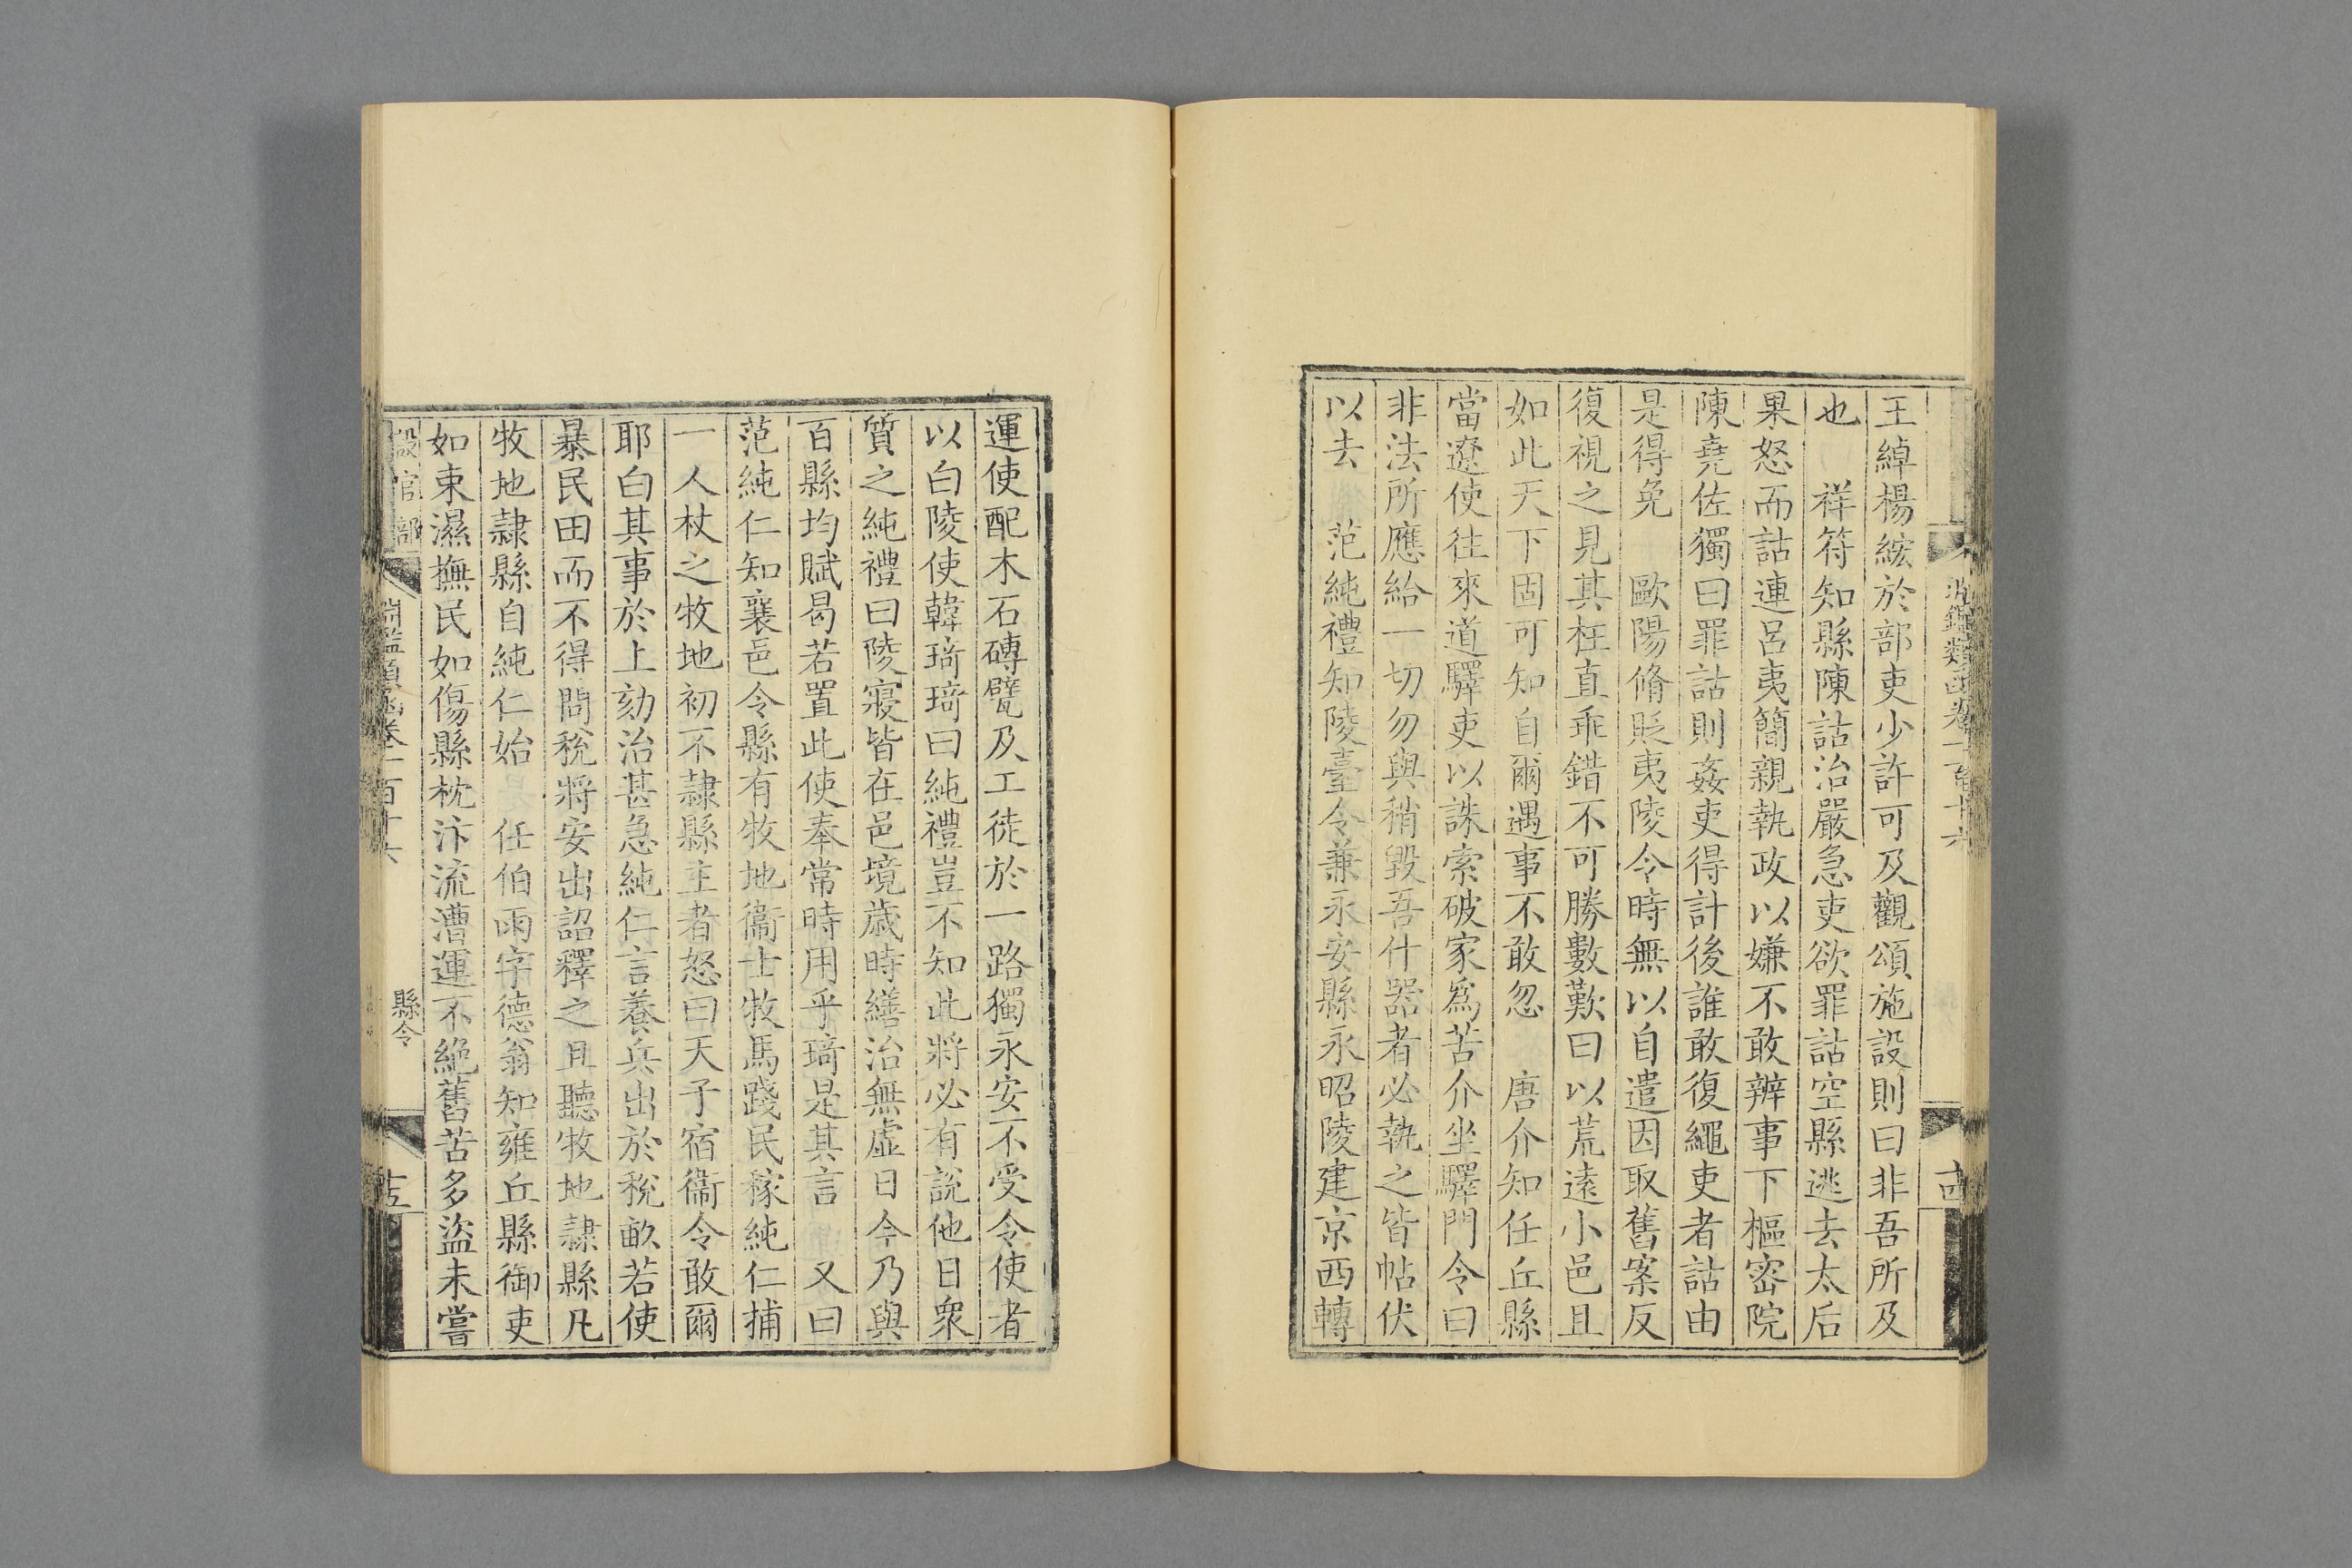 淵鑑類函卷一百十六
十四
王綽楊紘於部吏少許可及觀頌施設則曰非吾所及
也　祥符知縣陳詁治嚴急吏欲罪詁空縣逃去太后
果怒而詁連呂夷簡親執政以嫌不敢辨事下樞密院
陳堯佐獨曰罪詁則姦吏得計後誰敢復繩吏者詁由
是得免　歐陽脩貶夷陵令時無以自遣因取舊案反
復視之見其枉直乖錯不可勝數歎曰以荒遠小邑且
如此天下固可知自爾遇事不敢忽　唐介知任丘縣
當遼使往來道驛吏以誅索破家爲苦介坐驛門令曰
非法所應給一切勿與稍毀吾什器者必執之皆帖伏
以去　范純禮知陵臺令兼永安縣永昭陵建京西轉
運使配木石磚甓及工徒於一路獨永安不受令使者
以白陵使韓琦琦曰純禮豈不知此將必有說他日衆
質之純禮曰陵寢皆在邑境歲時繕治無虛日今乃與
百縣均賦曷若置此使奉常時用乎琦是其言　又曰
范純仁知襄邑令縣有牧地衞士牧馬踐民稼純仁捕
一人杖之牧地初不隷縣主者怒曰天子宿衞令敢爾
耶白其事於上劾治甚急純仁言養兵出於稅畝若使
暴民田而不得問稅將安出詔釋之且聽牧地隷縣凡
牧地隷縣自純仁始　任伯雨字德翁知雍丘縣御吏
如束濕撫民如傷縣枕汴流漕運不絶舊苦多盜未嘗
設官部
淵鑑類函卷一百十六
縣令
十五